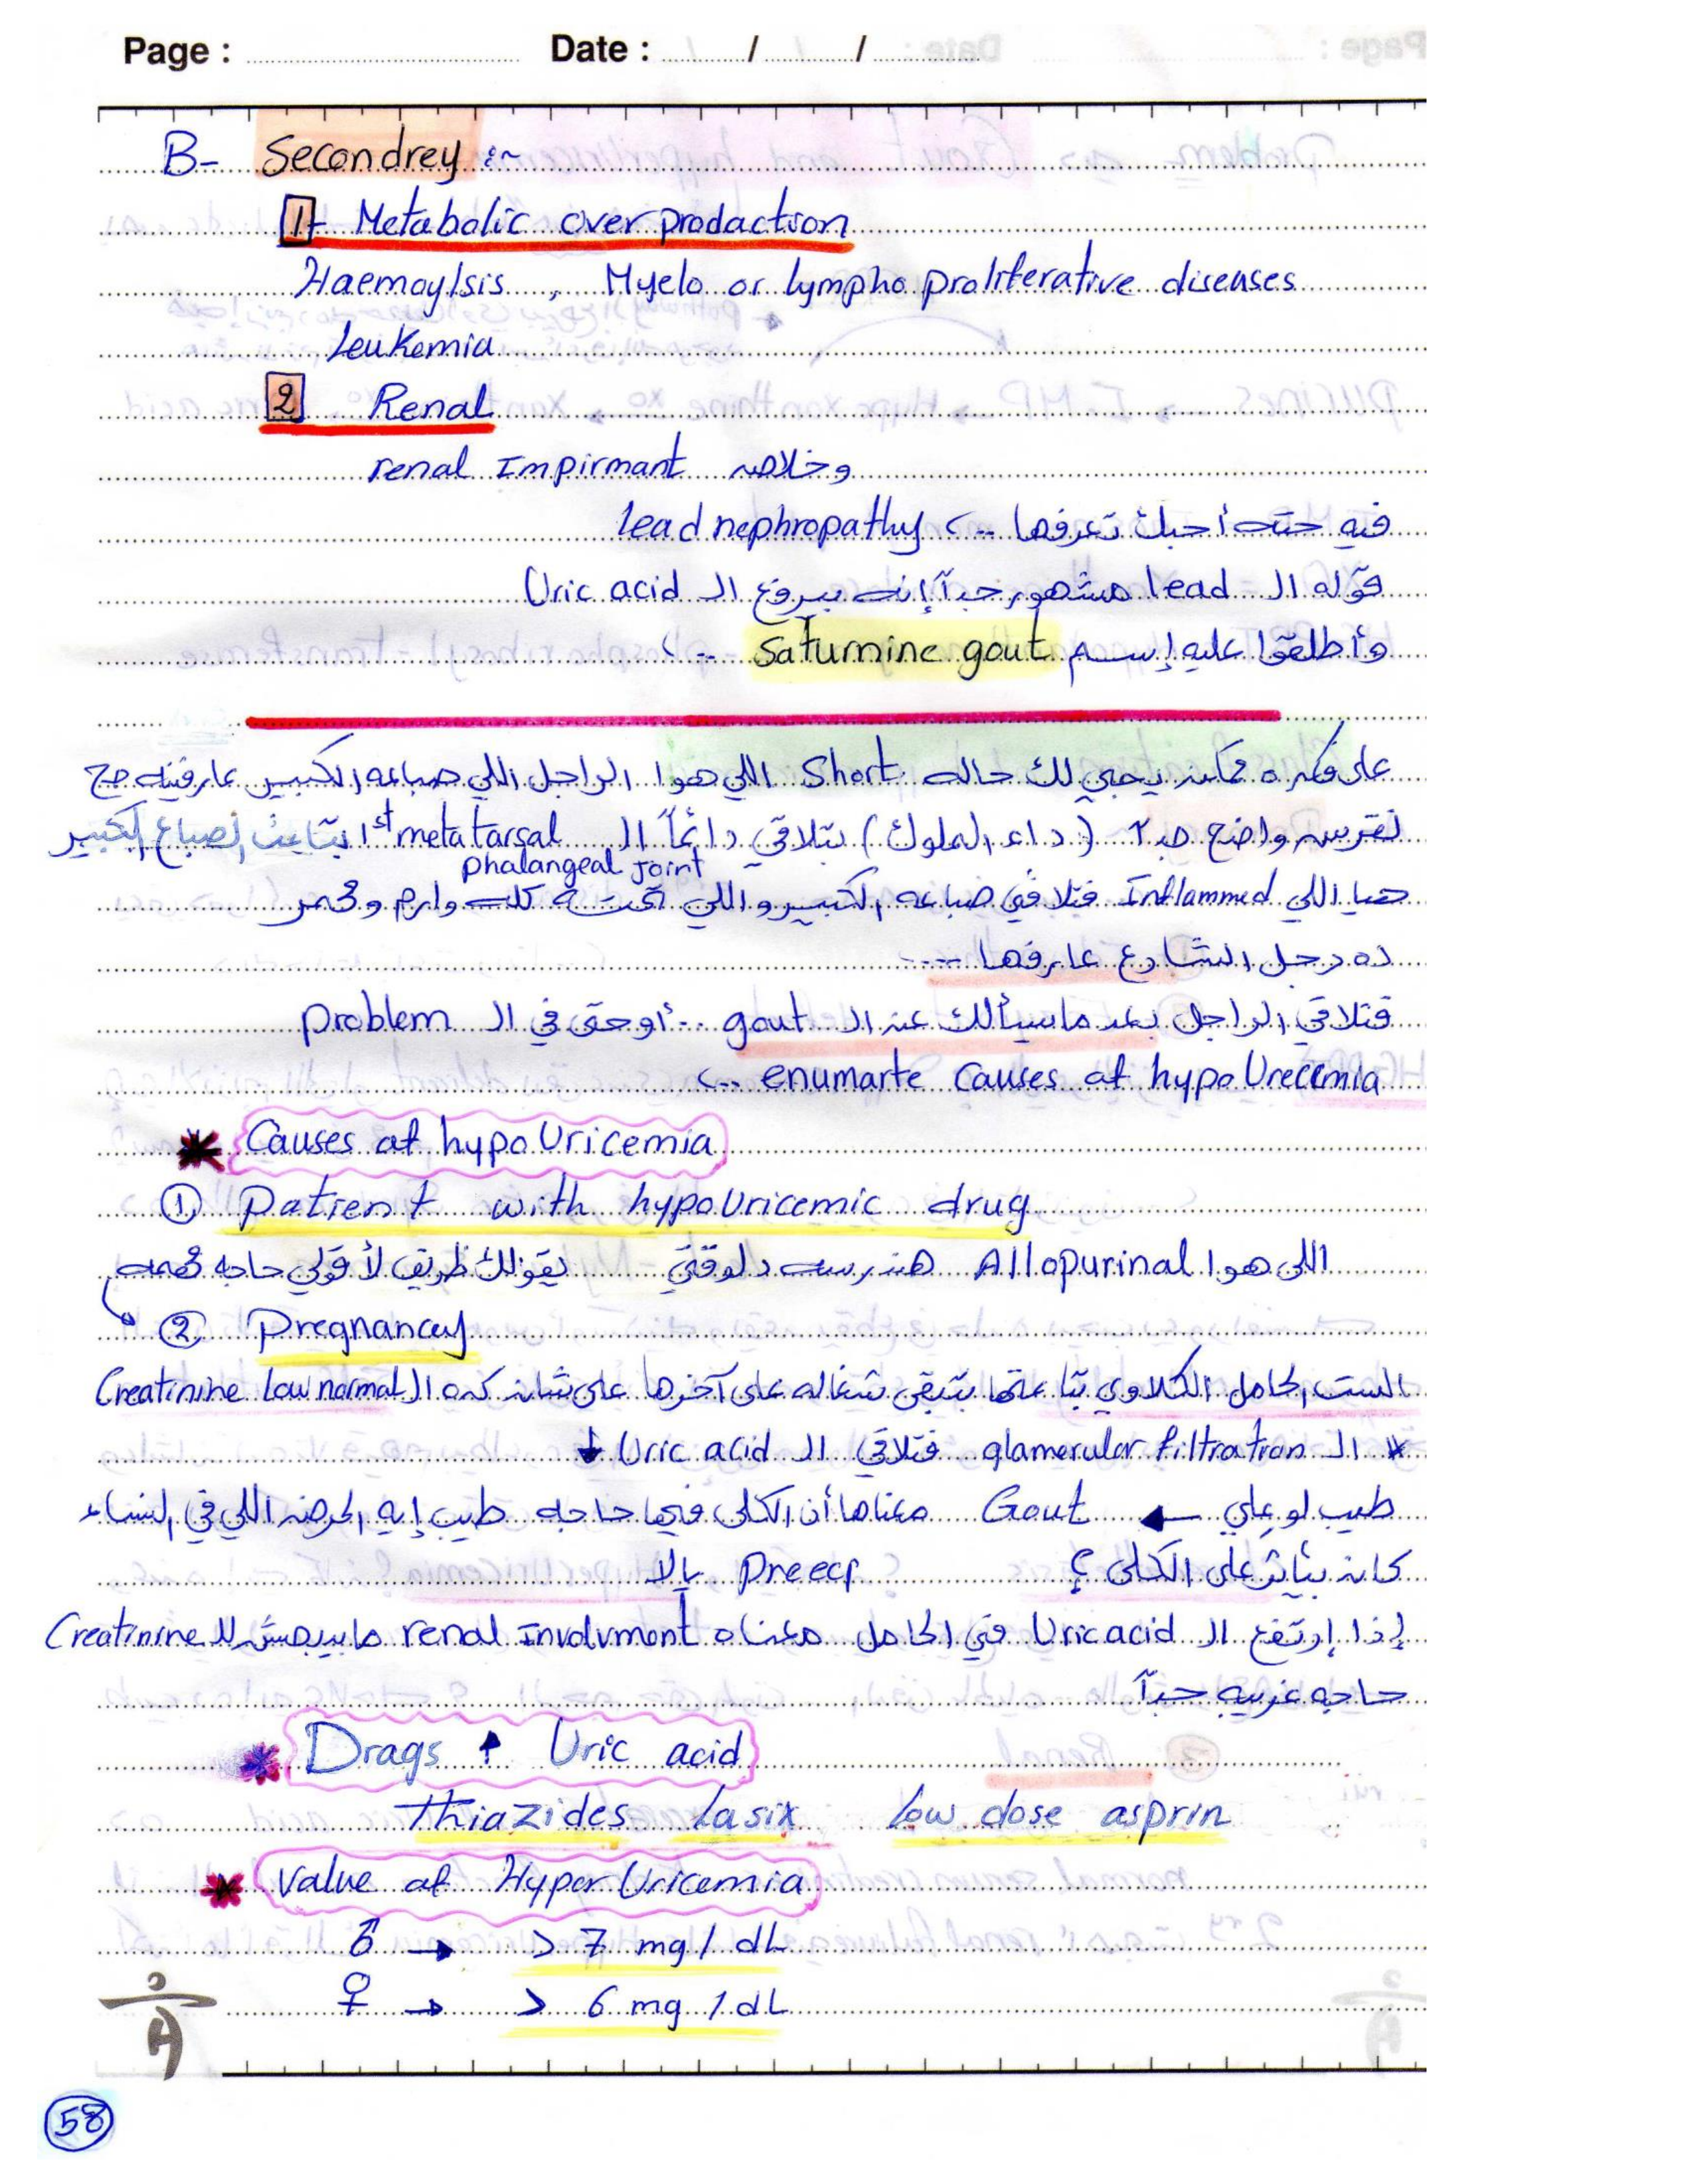 Page : Date : / /
B- Secondrey :~
1- Metabolic over prodaction
Haemoylsis , Myelo or lympho proliferative diseases
Leukemia
2 Renal
renal Impirmant وخلاص
فيه حته أحبك تعرفها --> lead nephropathy
قوله ال lead مشهور جداً إنه بيرفع ال Uric acid
وأطلقوا عليه إسم saturnine gout -->
على فكره ممكن يجي لك حاله Short اللي هوا الراجل اللي صباعه الكبير عارفينه صح
نقرس واضح جداً (داء الملوك) بتلاقي دائماً ال 1st metatarsal بتاعت الصباع الكبير
phalangeal joint
هيا اللي Inflammed فتلاقي صباعه الكبير واللي تحته كله وارم ومحمر
ده رجل الشارع عارفها ---
فتلاقي الراجل بعد ما سيألك عن ال gout -- أو حتى في ال problem
enumarte causes of hypo Urecemia -->
* Causes of hypo Uricemia
① Patient with hypo Uricemic drug
اللي هوا Allopurinal هندرسه دلوقتي يقولك ظريف لأ قولي حاجه مهمه
② Pregnancy
الست الحامل الكلاوي بتاعتها بتبقى شغاله على آخرها على شان كده ال Creatinine low normal
* ال glamerular filtration فتلاقي ال Uric acid ↓
طيب لو علي ← Gout معناها أن الكلى فيها حاجه طيب إيه المرض اللي في النساء
كان بيأثر على الكلى ؟ Preecl يالا
إذا إرتفع ال Uric acid في الحامل معناه renal Involvment ما بيبصش لل Creatinine
حاجه غريبه جداً
* Drags ↑ Uric acid
thiazides lasix low dose asprin
* value of Hyper Uricemia
♂ → > 7 mg / dL
♀ → > 6 mg / dL
58